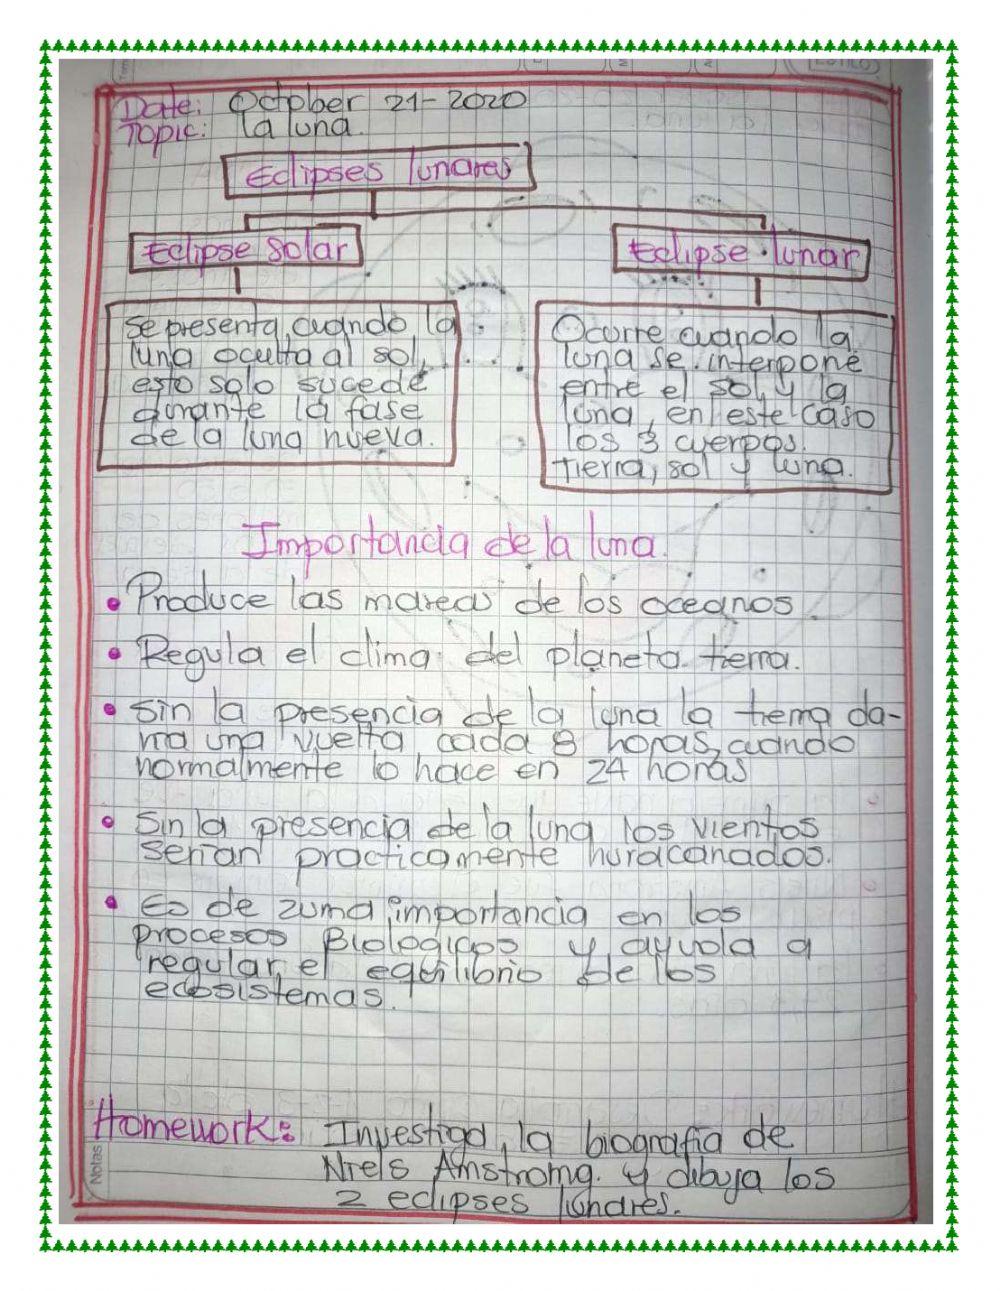 Date: October 21-2020
Topic: la luna.
Eclipses lunares
Eclipse solar
Eclipse lunar
Se presenta cuando la
luna oculta al sol,
esto solo sucede
durante la fase
de la luna nueva.
Ocurre cuando la
luna se interpone
entre el sol y la
luna, en este caso
los 3 cuerpos.
tierra, sol y luna.
Importancia de la luna.
• Produce las mareas de los oceanos
• Regula el clima del planeta tierra.
• Sin la presencia de la luna la tierra da-
ria una vuelta cada 8 horas, cuando
normalmente lo hace en 24 horas
• Sin la presencia de la luna los vientos
serian practicamente huracanados.
• Es de zuma importancia en los
procesos Biologicos y ayuda a
regular el equilibrio de los
ecosistemas.
Homework: Investiga la biografia de
Niels Amstromg. y dibuja los
2 eclipses lunares.
Notas